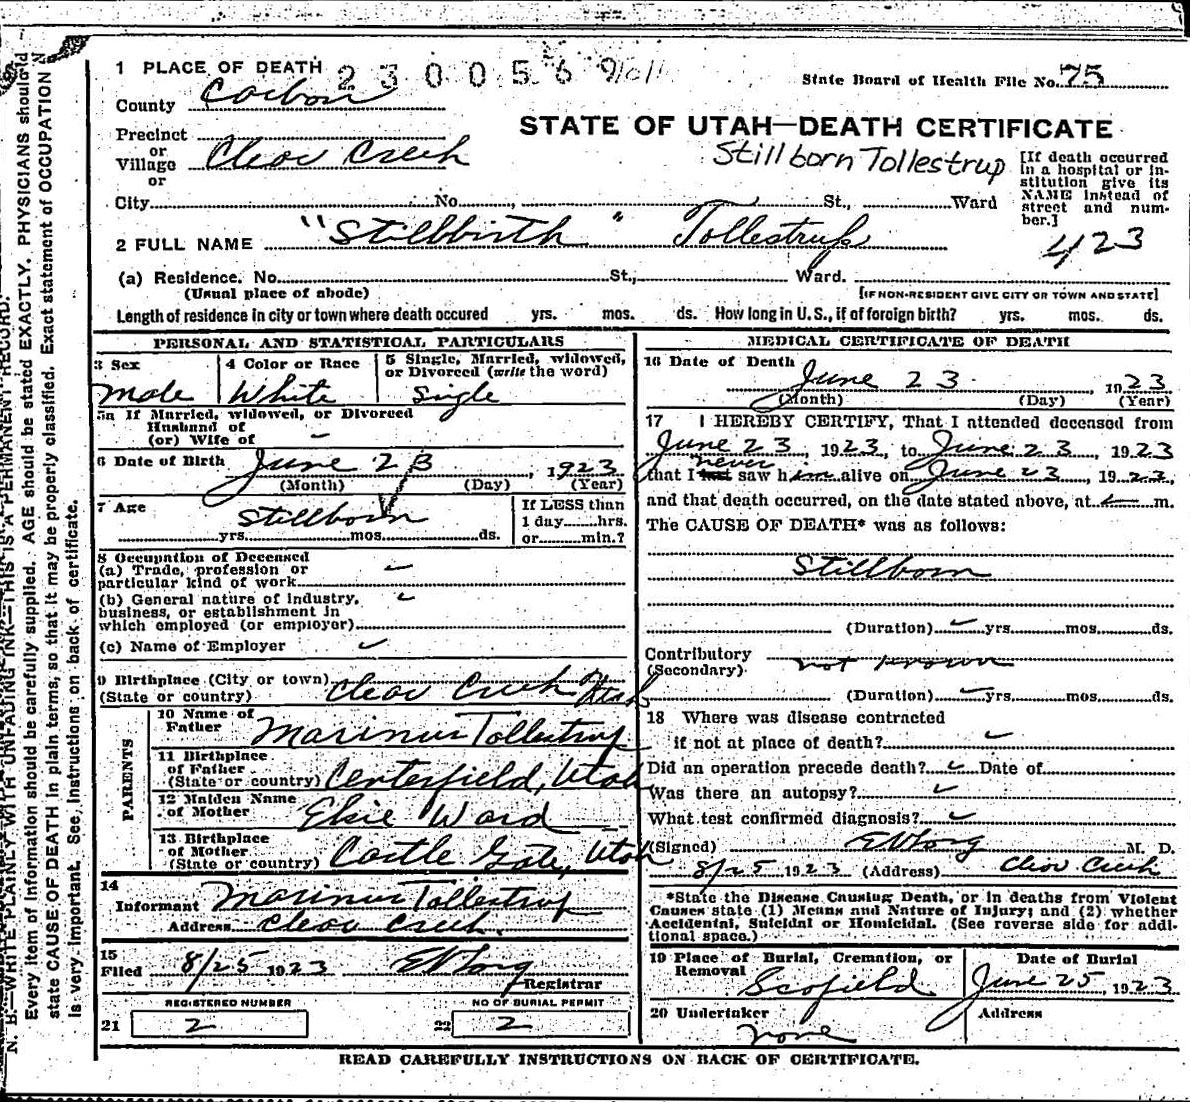 1 PLACE OF DEATH 2 3 0 0 5 6
State Board of Health File No. 75
County Carbon
STATE OF UTAH—DEATH CERTIFICATE
Precinct
or
Village Clear Creek
or
Stillborn Tollestrup
[If death occurred in a hospital or institution give its NAME instead of street and number.]
City No. , St., Ward
2 FULL NAME "Stillbirth" Tollestrup
423
(a) Residence. No. St., Ward.
(Usual place of abode) [IF NON-RESIDENT GIVE CITY OR TOWN AND STATE]
Length of residence in city or town where death occured yrs. mos. ds. How long in U.S., if of foreign birth? yrs. mos. ds.
PERSONAL AND STATISTICAL PARTICULARS
3 Sex Male
4 Color or Race White
5 Single, Married, widowed, or Divorced (write the word) Single
5a If Married, widowed, or Divorced
Husband of
(or) Wife of
6 Date of Birth June 23, 1923
(Month) (Day) (Year)
7 Age Stillborn
yrs. mos. ds.
If LESS than
1 day hrs.
or min.?
8 Occupation of Deceased
(a) Trade, profession or
particular kind of work
(b) General nature of industry,
business, or establishment in
which employed (or employer)
(c) Name of Employer
9 Birthplace (City or town)
(State or country) Clear Creek Utah
PARENTS
10 Name of
Father Marinus Tollestrup
11 Birthplace
of Father
(State or country) Centerfield, Utah
12 Maiden Name
of Mother Elsie Ward
13 Birthplace
of Mother
(State or country) Castle Gate, Utah
14
Informant Marinus Tollestrup
Address Clear Creek.
15
Filed 8/25 1923 E V Long
Registrar
REGISTERED NUMBER NO OF BURIAL PERMIT
21 2 22 2
MEDICAL CERTIFICATE OF DEATH
16 Date of Death June 23 1923
(Month) (Day) (Year)
17 I HEREBY CERTIFY, That I attended deceased from
June 23, 1923, to June 23, 1923
never
that I last saw him alive on June 23, 1923,
and that death occurred, on the date stated above, at m.
The CAUSE OF DEATH* was as follows:
Stillborn
(Duration) yrs. mos. ds.
Contributory
(Secondary) not known
(Duration) yrs. mos. ds.
18 Where was disease contracted
if not at place of death?
Did an operation precede death? Date of
Was there an autopsy?
What test confirmed diagnosis?
(Signed) E V Long M. D.
8/25 1923 (Address) Clear Creek
*State the Disease Causing Death, or in deaths from Violent
Causes state (1) Means and Nature of Injury; and (2) whether
Accidental, Suicidal or Homicidal. (See reverse side for additional space.)
19 Place of Burial, Cremation, or
Removal Scofield
Date of Burial
June 25, 1923
20 Undertaker none
Address
READ CAREFULLY INSTRUCTIONS ON BACK OF CERTIFICATE.
N. B. WRITE PLAINLY WITH UNFADING INK—THIS IS A PERMANENT RECORD.
Every item of information should be carefully supplied. AGE should be stated EXACTLY. PHYSICIANS should
state CAUSE OF DEATH in plain terms, so that it may be properly classified. Exact statement of OCCUPATION
is very important. See instructions on back of certificate.